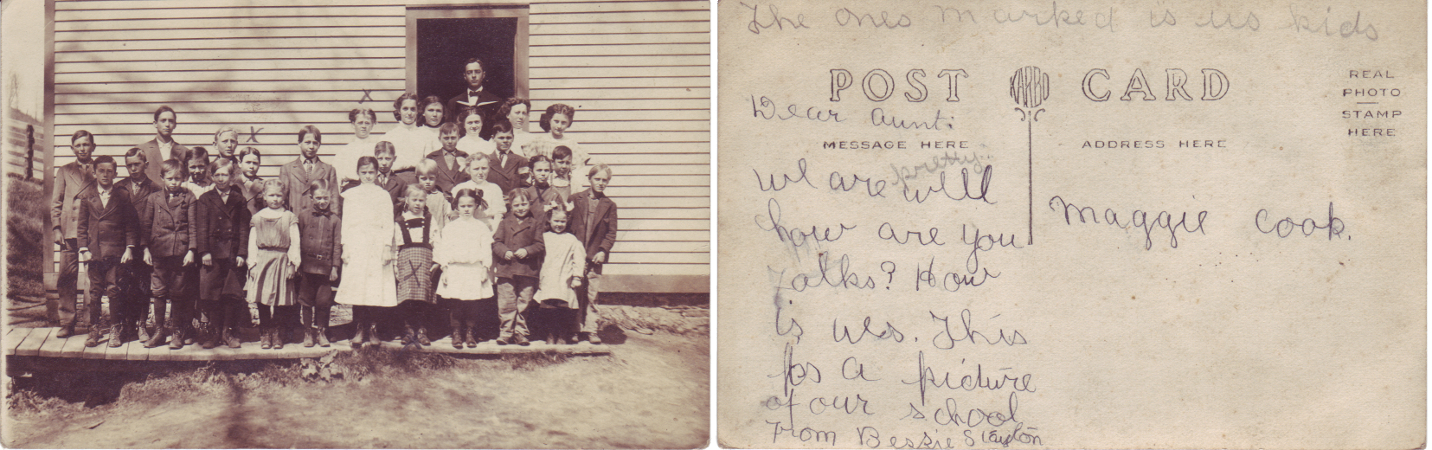 The ones marked is us kids
POST CARD
KARBO
REAL
PHOTO
STAMP
HERE
Dear Aunt:
MESSAGE HERE
ADDRESS HERE
pretty
We are well
how are you
Folks? How
is Wes. This
is a picture
of our school
From Bessie Slayton
Maggie Cook.
X
X
X